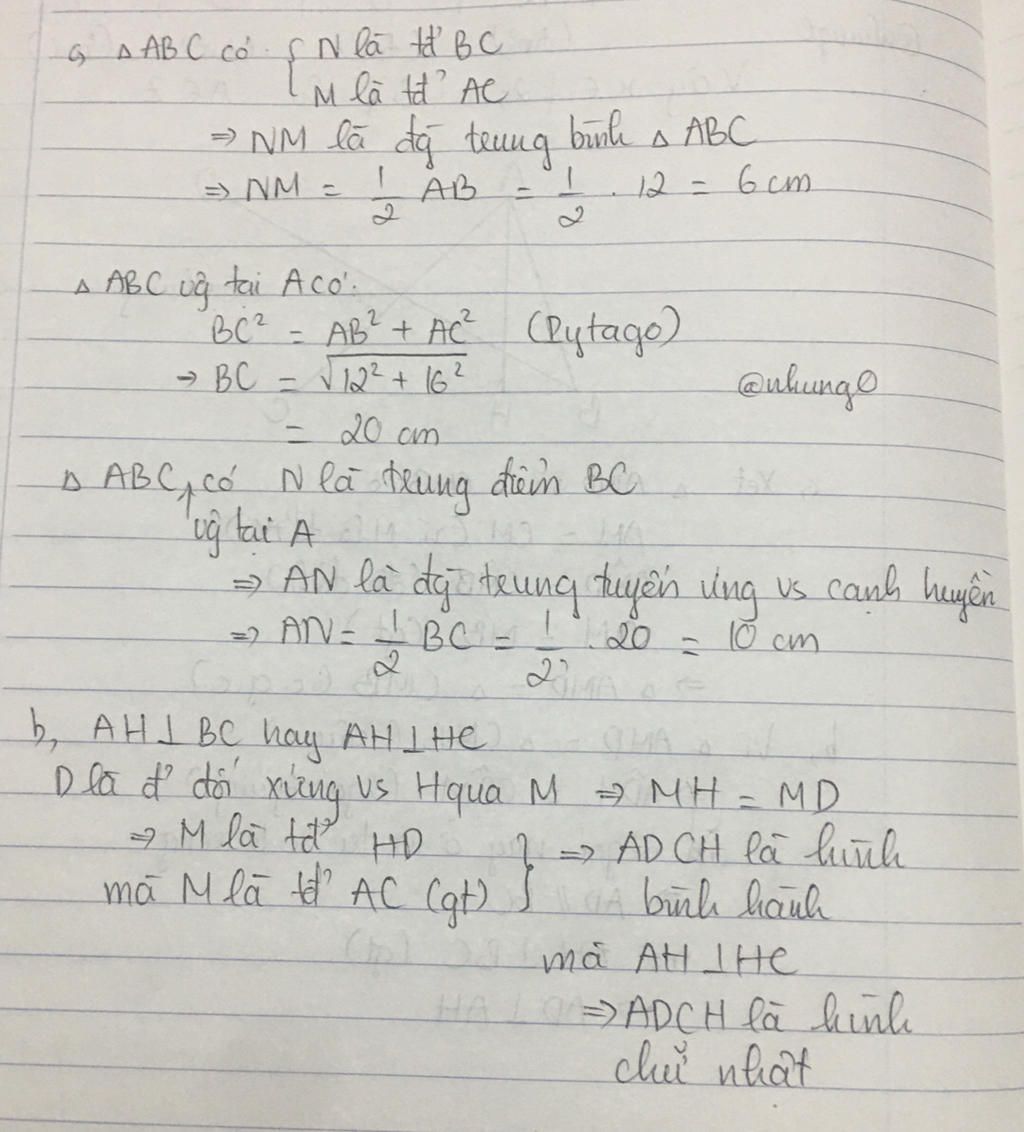 a, △ABC có { N là tđ' BC
M là tđ' AC
⇒ NM là đg̀ trung bình △ ABC
⇒ NM = 1/2 AB = 1/2 . 12 = 6 cm
△ ABC vg tại A có:
BC² = AB² + AC² (Pytago)
→ BC = √12² + 16²
@nhung0
= 20 cm
△ ABC, có N là trung điểm BC
vg tại A
⇒ AN là đg̀ trung tuyến ứng vs cạnh huyền
⇒ AN = 1/2 BC = 1/2 . 20 = 10 cm
b, AH ⊥ BC hay AH ⊥ HC
D là đ' đối xứng vs H qua M ⇒ MH = MD
⇒ M là tđ' HD } ⇒ ADCH là hình
mà M là tđ' AC (gt) bình hành
mà AH ⊥ HC
⇒ ADCH là hình
chữ nhật